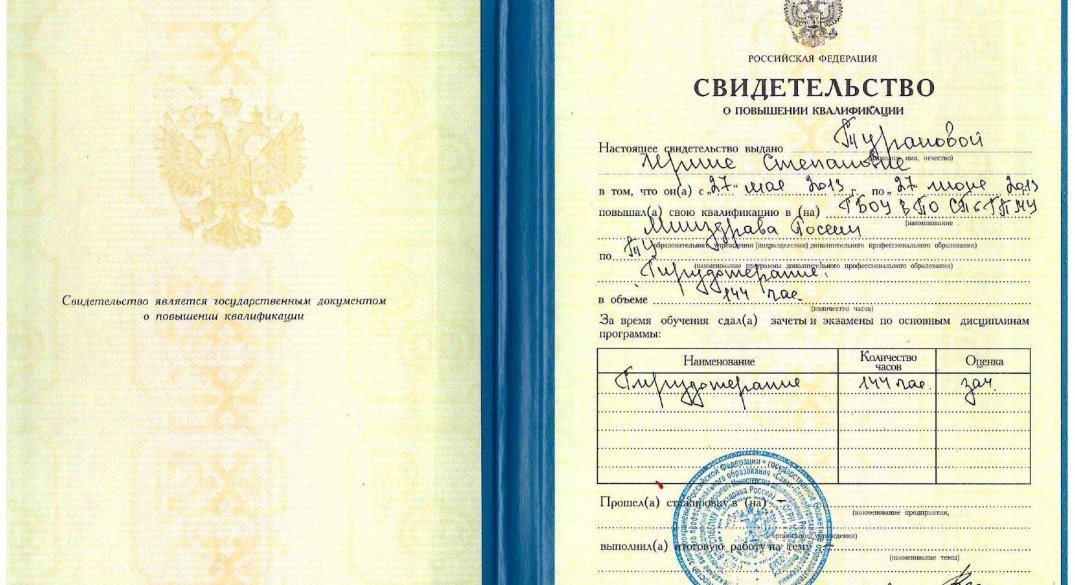 Свидетельство является государственным документом
о повышении квалификации
РОССИЙСКАЯ ФЕДЕРАЦИЯ
СВИДЕТЕЛЬСТВО
О ПОВЫШЕНИИ КВАЛИФИКАЦИИ
Настоящее свидетельство выдано Турановой
(фамилия, имя, отчество)
Степановне
в том, что он(а) с „27“ мая 2013 г. по „27“ июня 2013
повышал(а) свою квалификацию в (на) ГБОУ ВПО СПбГПМУ
(наименование
Минздрава России
образовательного учреждения (подразделения) дополнительного профессионального образования)
по ТУ
(наименование программы дополнительного профессионального образования)
Гирудотерапия.
в объеме 144 час.
(количество часов)
За время обучения сдал(а) зачеты и экзамены по основным дисциплинам
программы:
Наименование Количество часов Оценка
Гирудотерапия 144 час. зач.
Прошел(а) стажировку в (на) –
(наименование предприятия,
организации, учреждения)
выполнил(а) итоговую работу на тему –
(наименование темы)